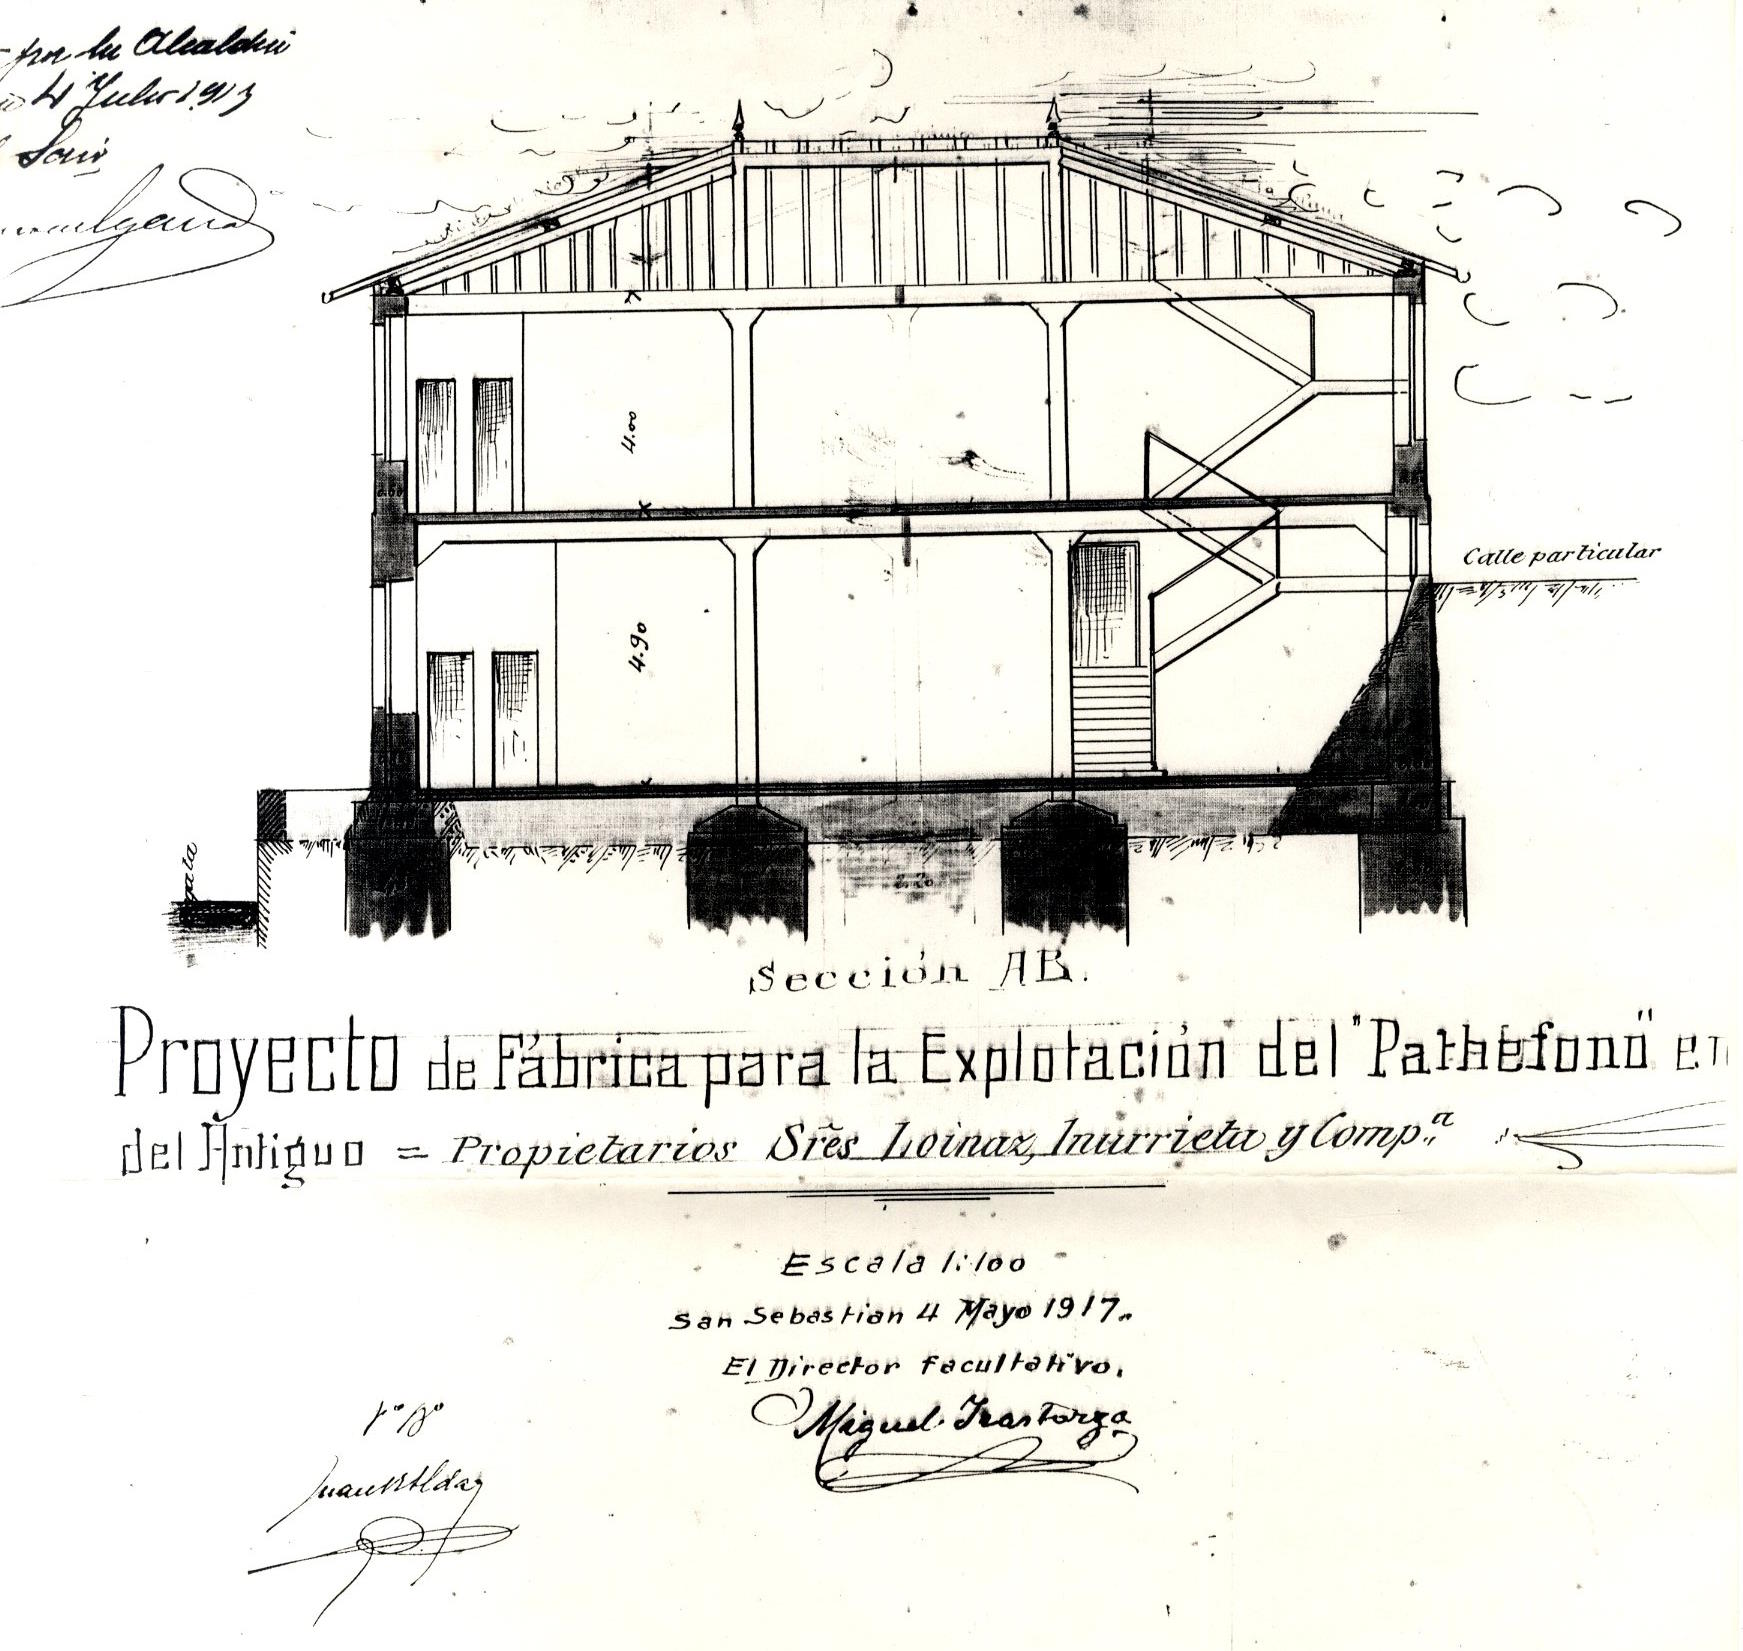 por la Alcaldía
4 Julio 1913
Calle particular
4.00
4.90
Sección AB.
Proyecto de Fábrica para la Explotación del "Pathéfono" en
del Antiguo = Propietarios Sres Loinaz, Inurrieta y Comp.ª
Escala 1:100
San Sebastian 4 Mayo 1917.
El Director facultativo.
Miguel Irastorza
Vº Bº